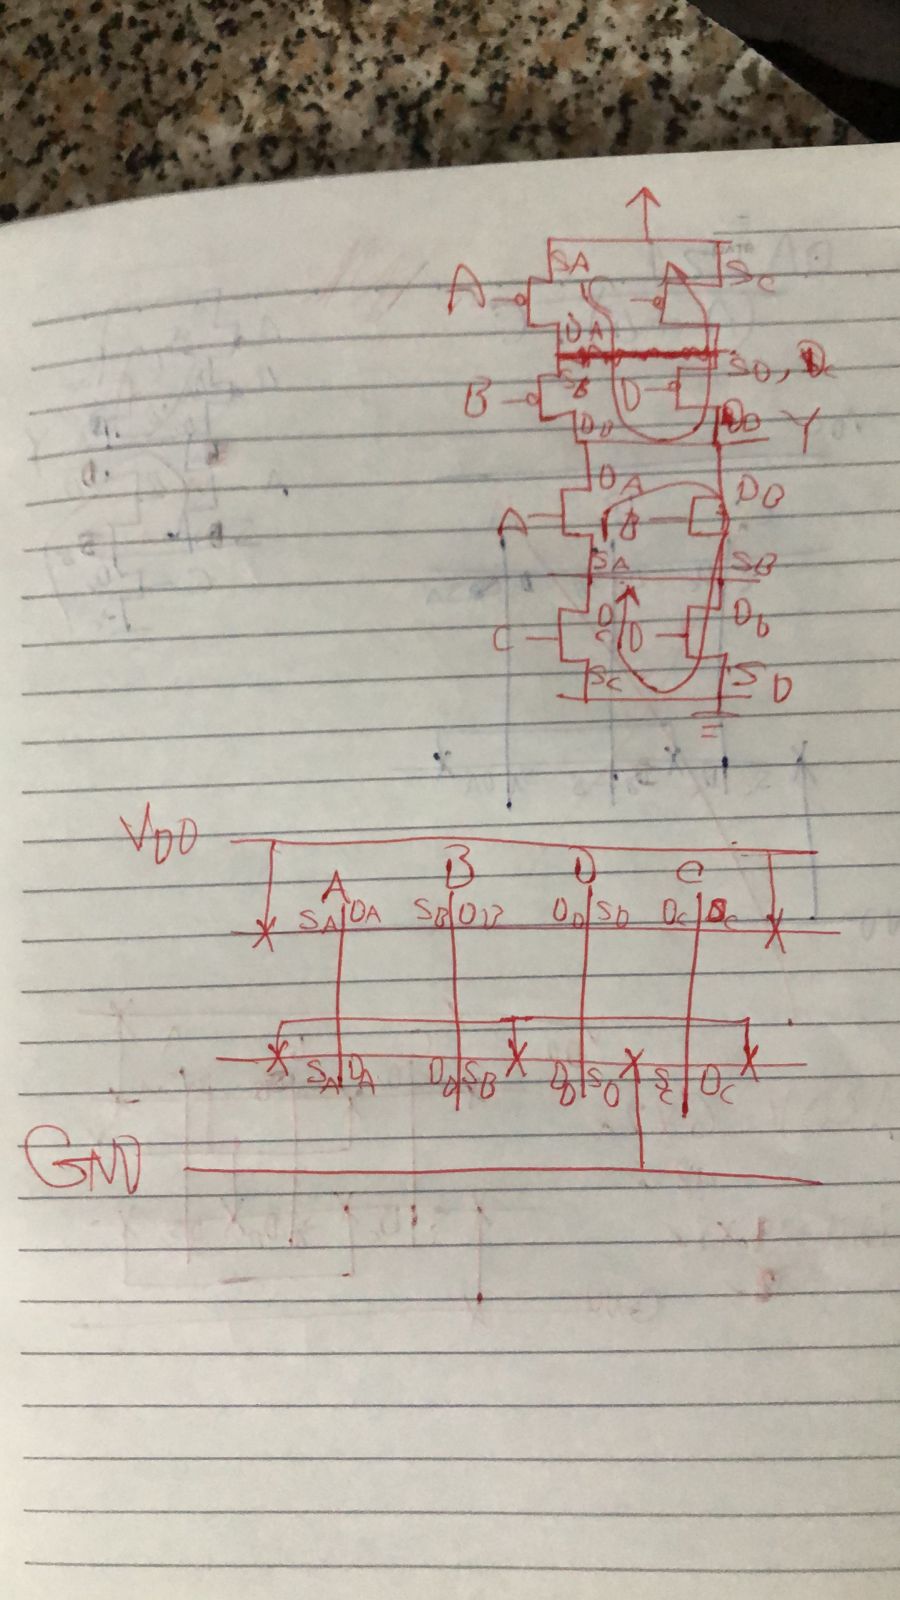 SA SC
A
DA
SB D SD, DC
B
DD DD Y
DA DB
A B
SA SB
D Db
C C D
SC SD
VDD
A B D C
SA DA SB DB DD SD DC
SA DA DB SB DD SD SC DC
GND